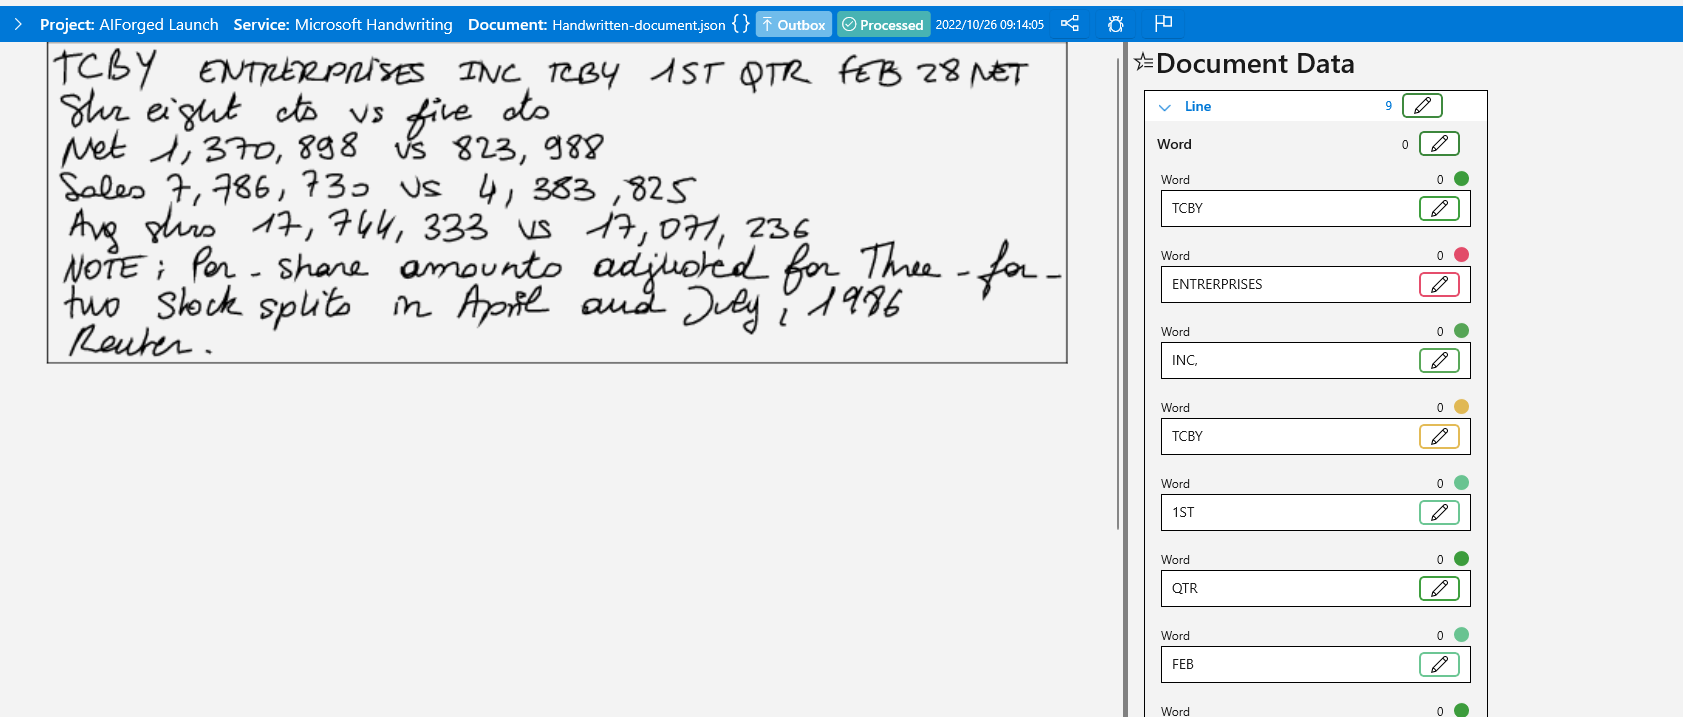 Project: AIForged Launch Service: Microsoft Handwriting Document: Handwritten-document.json {} Outbox Processed 2022/10/26 09:14:05
TCBY ENTRERPRISES INC TCBY 1ST QTR FEB 28 NET
Shr eight cts vs five cts
Net 1,370,898 vs 823,988
Sales 7,786,730 vs 4,383,825
Avg shrs 17,744,333 vs 17,071,236
NOTE: Per-share amounts adjusted for Three-for-
two stock splits in April and July, 1986
Reuter.
Document Data
Line 9
Word 0
Word 0
TCBY
Word 0
ENTRERPRISES
Word 0
INC,
Word 0
TCBY
Word 0
1ST
Word 0
QTR
Word 0
FEB
Word 0